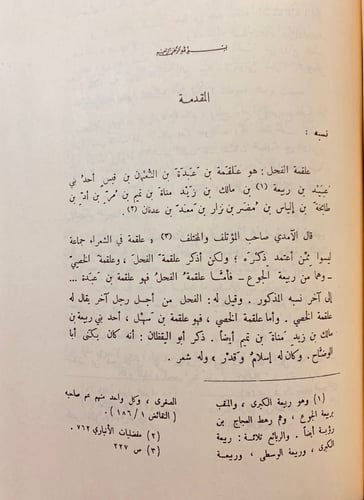 بسم الله الرحمن الرحيم
المقدمة
نسبه :
علقمة الفحل : هو عَلقَمة بن عَبَدَة بن النُّعْمان بن قيس أحدُ بني
عُبَيْد بن ربيعة (١) بن مالك بن زَيْد مناة بن تميم بن مُرّ بن أُدّ بن
طابخَة بن إلياس بن مُضَر بن نزار بن مَعَدّ بن عدنان (٢) .
قال الآمدي صاحب المؤتلف والمختلف (٣) « علقمة في الشعراء جماعة
ليسوا ممّن أعتمد ذكرَه ؛ ولكن أذكر علقمةَ الفحل ، وعلقمة الخصيّ
ـ وهما من ربيعة الجوع ـ فأمّا علقمةُ الفحلُ فهو علقمة بن عَبَدة ...
إلى آخر نسبه المذكور . وقيل له : الفحل من أجل رجل آخر يقال له
علقمة الخصي . وأما علقمة الخصي ، فهو علقمة بن سَهْل ، أحد بني ربيعة بن
مالك بن زيد مَناة بن تميم أيضاً . ذكر أبو اليقظان : أنه كان يكنى أبا
الوضّاح . وكان له إسلامٌ وقَدْر » وله شعر .
(١) وهو ربيعة الكبرى ، والملقب
بربيعة الجوع ، وهم رهط العجاج بن
رؤبة أيضاً . والربائع ثلاثة : ربيعة
الكبرى ، وربيعة الوسطى ، وربيعة
الصغرى ، وكل واحد منهم عم صاحبه
( النقائض ١ / ١٨٦ ) .
(٢) مفضليات الأنباري ٧٦٢
(٣) ص ٢٢٧